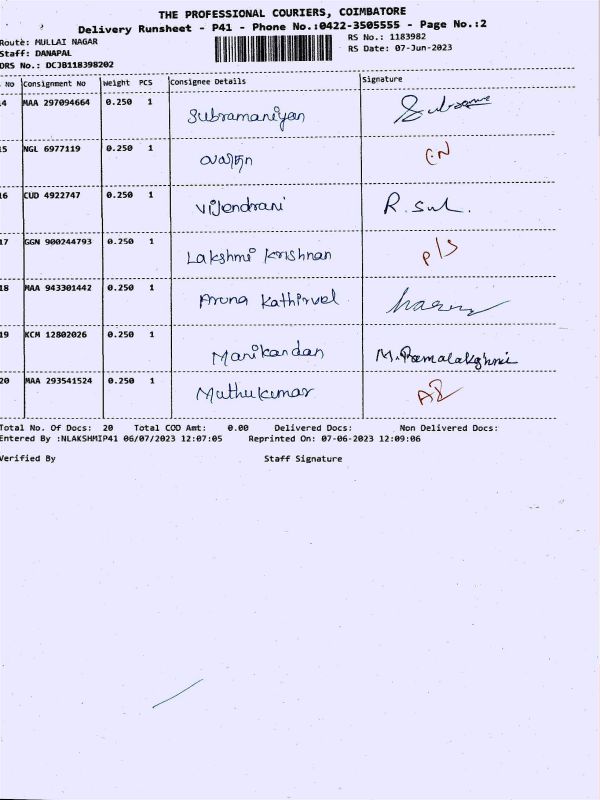 THE PROFESSIONAL COURIERS, COIMBATORE
Delivery Runsheet - P41 - Phone No.:0422-3505555 - Page No.:2
Route: MULLAI NAGAR RS No.: 1183982
Staff: DANAPAL RS Date: 07-Jun-2023
DRS No.: DCJB118398202
No Consignment No Weight PCS Consignee Details Signature
14 MAA 297094664 0.250 1 Subramaniyan
15 NGL 6977119 0.250 1 C.N
16 CUD 4922747 0.250 1 Vijendrani R. Sul.
17 GGN 900244793 0.250 1 Lakshmi Krishnan P/S
18 MAA 943301442 0.250 1 Aruna Kathirvel
19 KCM 12802026 0.250 1 Manikandan M. Ramalakshmi
20 MAA 293541524 0.250 1 Muthukumar
Total No. Of Docs: 20 Total COD Amt: 0.00 Delivered Docs: Non Delivered Docs:
Entered By :NLAKSHMIP41 06/07/2023 12:07:05 Reprinted On: 07-06-2023 12:09:06
Verified By Staff Signature